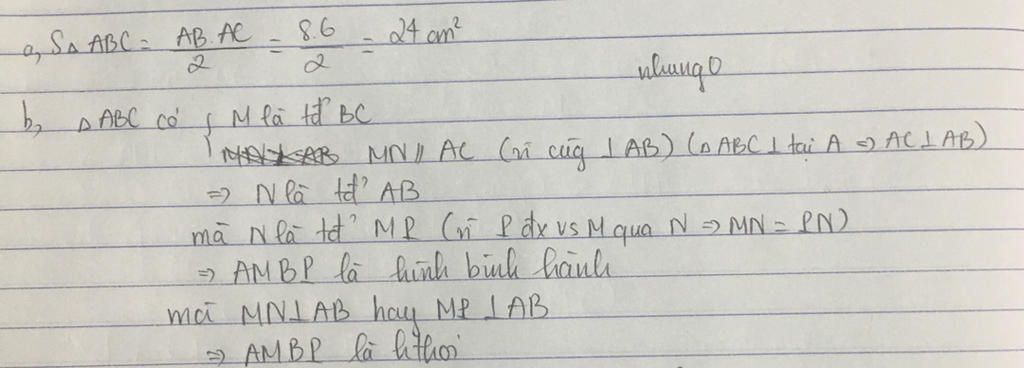 a, S△ABC = AB.AC/2 = 8.6/2 = 24 cm²
nhung0
b, △ABC có { M là tđ' BC
MN // AC (vì cùg ⊥ AB) (△ABC ⊥ tại A => AC ⊥ AB)
=> N là tđ' AB
mà N là tđ' MP (vì P đx vs M qua N => MN = PN)
=> AMBP là hình bình hành
mà MN ⊥ AB hay MP ⊥ AB
=> AMBP là hthoi